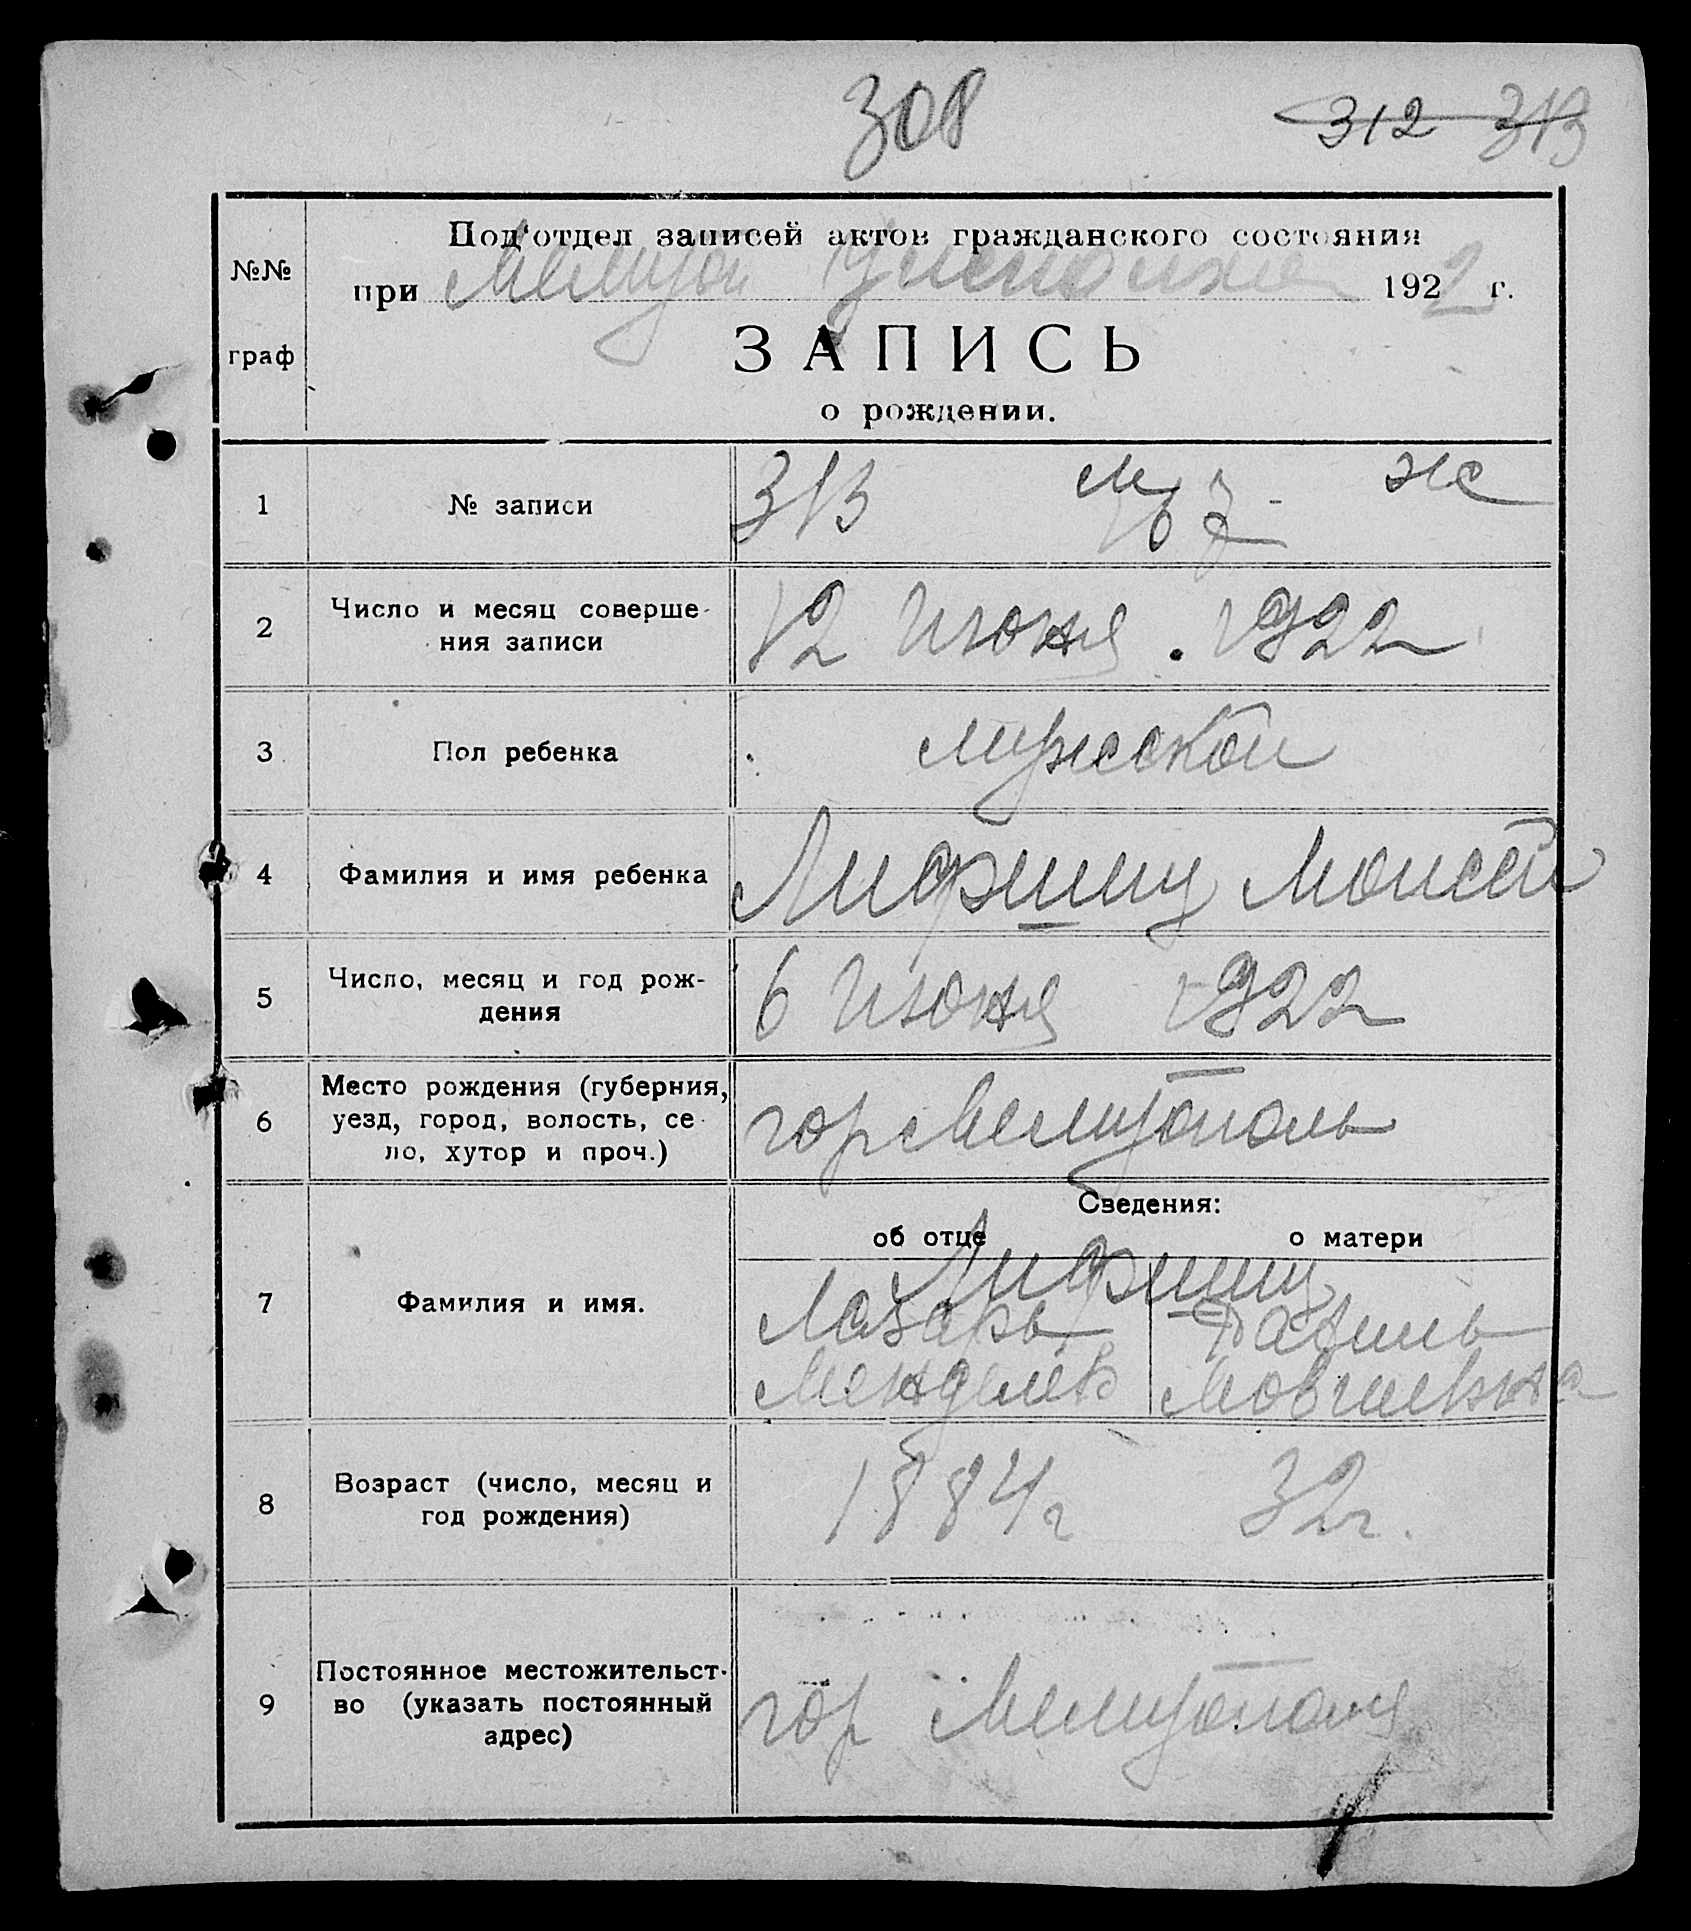 308
312 313
Под‘отдел записей актов гражданского состояния
№№
при Мелитоп Уисполкоме 1922 г.
граф
ЗАПИСЬ
о рождении.
1 № записи 313 м ж
2 Число и месяц соверше-
ния записи
12 июня. 1922
3 Пол ребенка мужской
4 Фамилия и имя ребенка Лифшиц Моисей
5 Число, месяц и год рож-
дения
6 июня 1922
6 Место рождения (губерния,
уезд, город, волость, се-
ло, хутор и проч.)
гор Мелитополь
Сведения:
об отце о матери
7 Фамилия и имя.
Лифшиц
Лазарь
Менделев Мовшевна
8 Возраст (число, месяц и
год рождения)
1884 г 32 г.
9 Постоянное местожительст-
во (указать постоянный
адрес)
гор Мелитополь